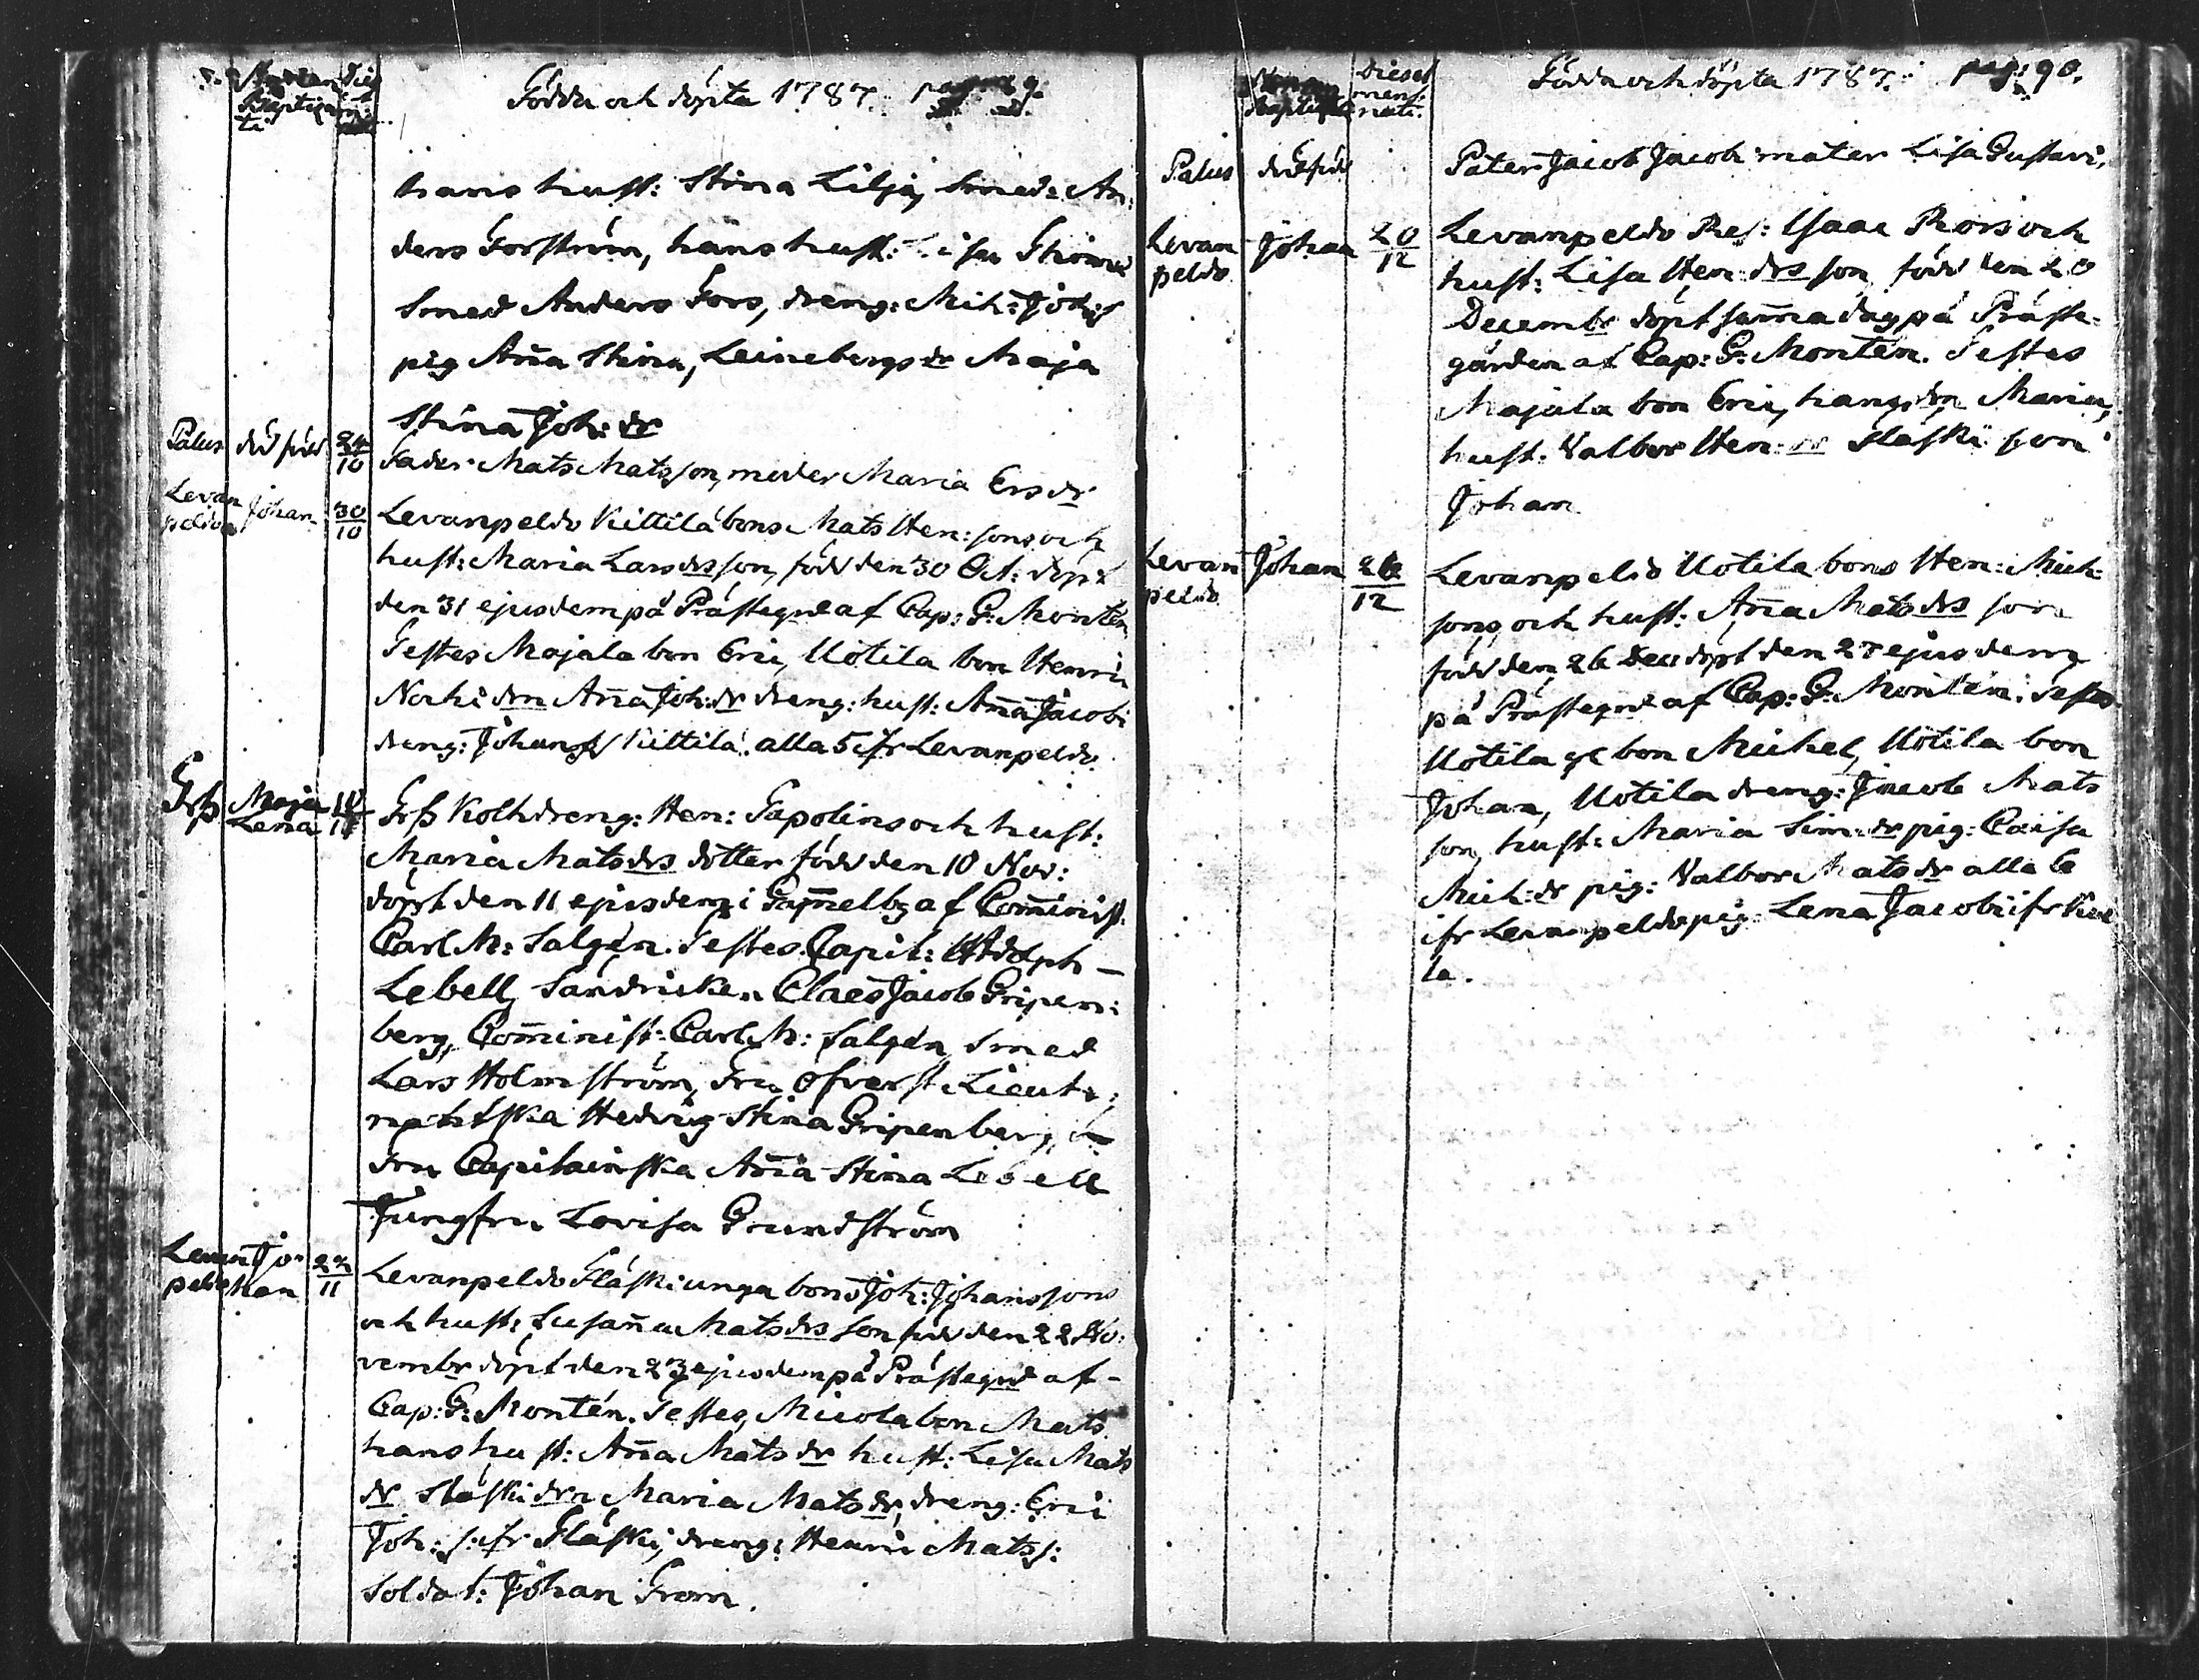 Födda och döpta 1787.
Baptiza
ti
hans hust: Stina Lilja, Smed: An:
ders Forström, hans hust: Lisa
Smed Anders Fors, dreng: Mih: Joh:s
pig Aña Stina, Leinebergs dr Maja
Stina Joh: dr
Palus död född 24/10 Fader Mats Matsson, moder Maria Ers dr
Levan Johan 30/10 Levanpeldo Kittilä bons Mats Hen: sons och
peldo hust: Maria Lars drs son, född den 30 Oct: döpt
den 31 ejusdem på Prästegrd af Cap: G: Montén
Testes Majala bon Eric, Uotila bon Henric
Nocki drn Aña Joh: dr dreng: hust: Aña Jacobi
dreng: Johan Kittilä. alla 5 ifr Levanpeldo.
Frß Maja Frß Kolk dreng: Hen: Tapolins och hust:
Lena Maria Mats drs dotter född den 10 Nov:
döpt den 11 ejusdem i Gam̃elby af Com̃inist.
Carl M: Salgén. Testes Capit: Adolph
Lebell, Fändricken Claes Jacob Gripen:
berg, Com̃inist: Carl M: Salgén, Smed
Lars Holmström, Fru Öfverst Lieut:
nantska Hedvig Stina Gripenberg,
Fru Capitainska Aña Stina Lebell
Jungfru Lovisa Grundström
Levan Jo- 22/11 Levanpeldo Fläski unga bons Joh: Johanssons
peldo han och hust: Susaña Mats drs son född den 22 No:
vembr döpt den 23 ejusdem på Prästegrd af
Cap: G: Montén. Testes, Micola bon Mats
hans hust: Aña Mats dr hust: Lisa Mats
dr Fläski drn Maria Mats dr, dreng: Eric
Joh: s: ifr Fläski, dreng: Henric Mats s:
Soldat: Johan From.
Födda och döpta 1787. pag: 90.
Dies et
mens:
nati.
Palus död född Pater Jacob Jacobi mater Lisa Gustavi,
Levan Johan 20/12 Levanpeldo Isaac Rors och
peldo hust: Lisa Hen: drs son, född den 20
Decembr döpt sam̃a dag på Präste-
gården af Cap: G: Montén. Testes
Majala bon Eric, hans drn Maria,
hust: Valbor Hen: dr Fläski son
Johan
Levan Johan 26/12 Levanpeldo Uotila bons Hen: Mich:
peldo sons och hust: Aña Mats drs son
född den 26 Dec: döpt den 27 ejusdem
på Prästegrd af Cap: G: Montén. Testes
Uotila gl bon Michel, Uotila bon
Johan, Uotila dreng: Jacob Mats
son, hust: Maria Sim: dr pig: Caisa
Mich: dr pig: Valbor Mats dr alla 6
ifr Levanpeldo pig: Lena Jacobi ifr
la.